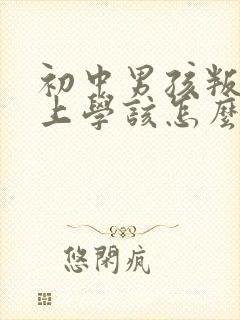 初中男孩叛
上學該怎麼
悠閑疯